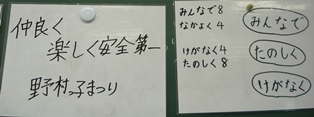 仲良く
楽しく安全第一
野村っ子まつり
みんなで8
なかよく4
けがなく4
たのしく8
みんなで
たのしく
けがなく